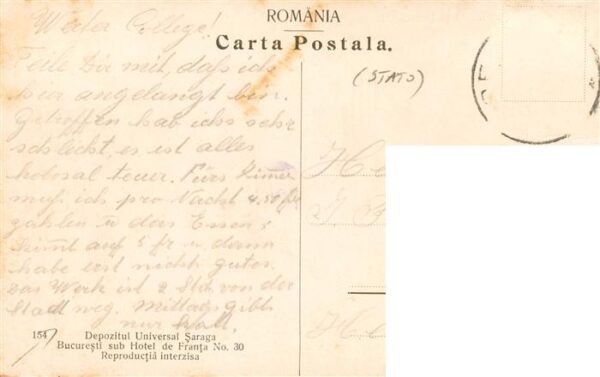 ROMÂNIA
Carta Postala.
(STATO)
Werter College!
Teile Dir mit, daß ich
hier angelangt bin.
Getroffen hab ichs sehr
schlecht, es ist alles
kolosal teuer. Fürs Zimmer
muß ich pro Nacht 4.50 fr.
zahlen u das Essen
kommt auf 5 fr u dann
habe erst nichts gutes.
Das Werk ist 2 Std. von der
Stadt weg. Mittags gibts
nur kalt.
154
Depozitul Universal Șaraga
București sub Hotel de Franța No. 30
Reproducția interzisa